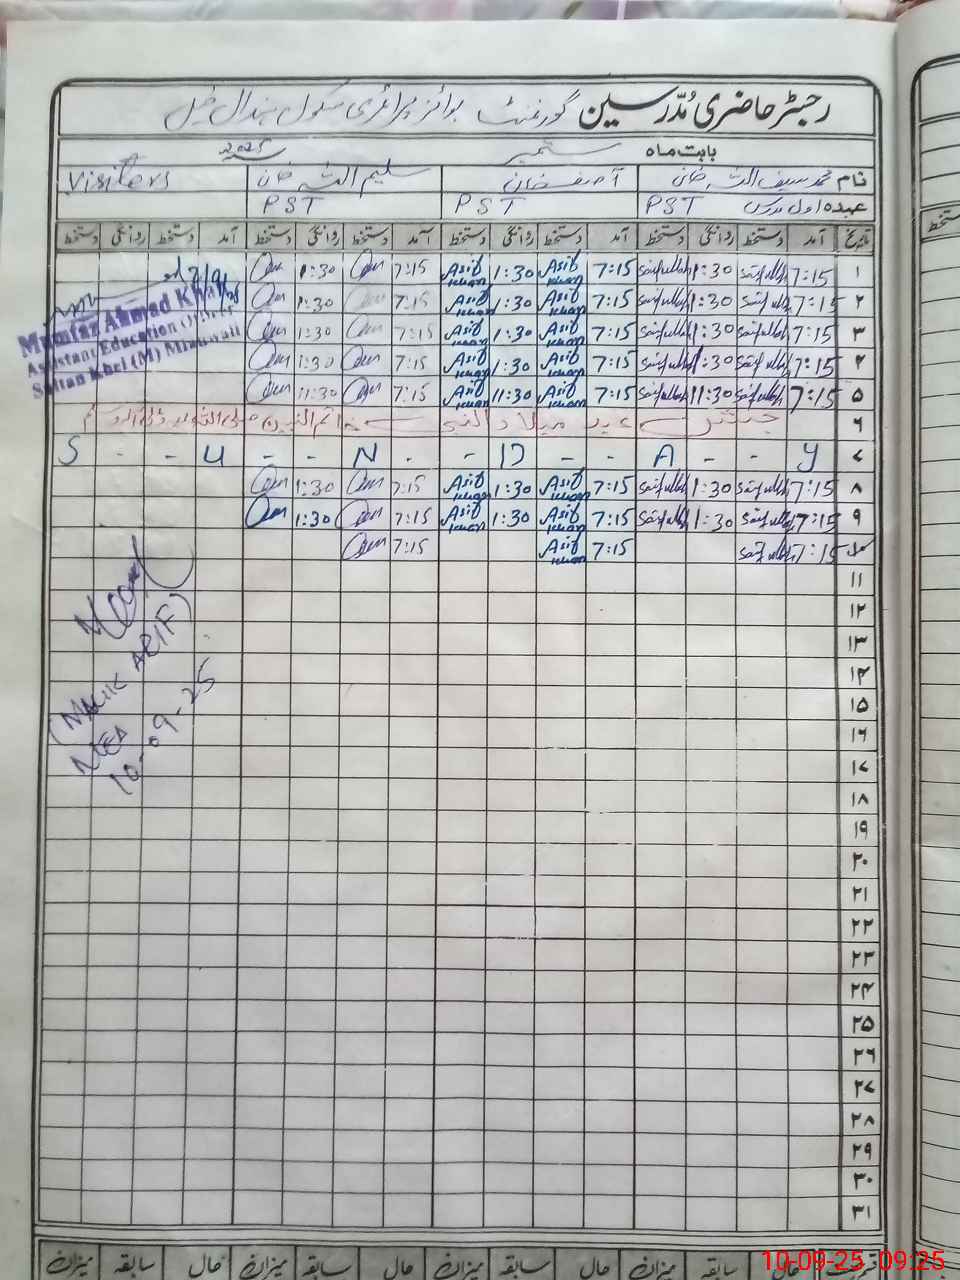 رجسٹر حاضری مُدّرسین گورنمنٹ بوائز پرائمری سکول
بابت ماہ ستمبر 2025
نام محمد سیف اللہ خان آصف خان سلیم اللہ خان Visiters
عہدہ اول مدرس PST PST PST
تاریخ آمد دستخط روانگی دستخط آمد دستخط روانگی دستخط آمد دستخط روانگی دستخط آمد دستخط روانگی دستخط
۱ 7:15 Saifullah 1:30 Saifullah 7:15 Asif Khan 1:30 Asif Khan 7:15 1:30
۲ 7:15 Saifullah 1:30 Saifullah 7:15 Asif Khan 1:30 Asif Khan 7:15 1:30
۳ 7:15 Saifullah 1:30 Saifullah 7:15 Asif Khan 1:30 Asif Khan 7:15 1:30
۴ 7:15 Saifullah 1:30 Saifullah 7:15 Asif Khan 1:30 Asif Khan 7:15 1:30
۵ 7:15 Saifullah 11:30 Saifullah 7:15 Asif Khan 11:30 Asif Khan 7:15 11:30
Mumtaz Ahmad Khan
Assistant Education Officer
Sultan Khel (M) Mianwali
۶ جشن عید میلاد النبی خاتم النبین صلی اللہ علیہ وآلہ وسلم
۷ S - - U - - N - - D - - A - - Y
۸ 7:15 Saifullah 1:30 Saifullah 7:15 Asif Khan 1:30 Asif Khan 7:15 1:30
۹ 7:15 Saifullah 1:30 Saifullah 7:15 Asif Khan 1:30 Asif Khan 7:15 1:30
۱۰ 7:15 Saifullah 7:15 Asif Khan 7:15
۱۱
۱۲
۱۳
۱۴
۱۵
۱۶
۱۷
۱۸
۱۹
۲۰
۲۱
۲۲
۲۳
۲۴
۲۵
۲۶
۲۷
۲۸
۲۹
۳۰
۳۱
(MALIK ARIF)
MEA
10-09-25
حال سابقہ میزان حال سابقہ میزان حال سابقہ میزان حال سابقہ میزان
10-09-25 09:25